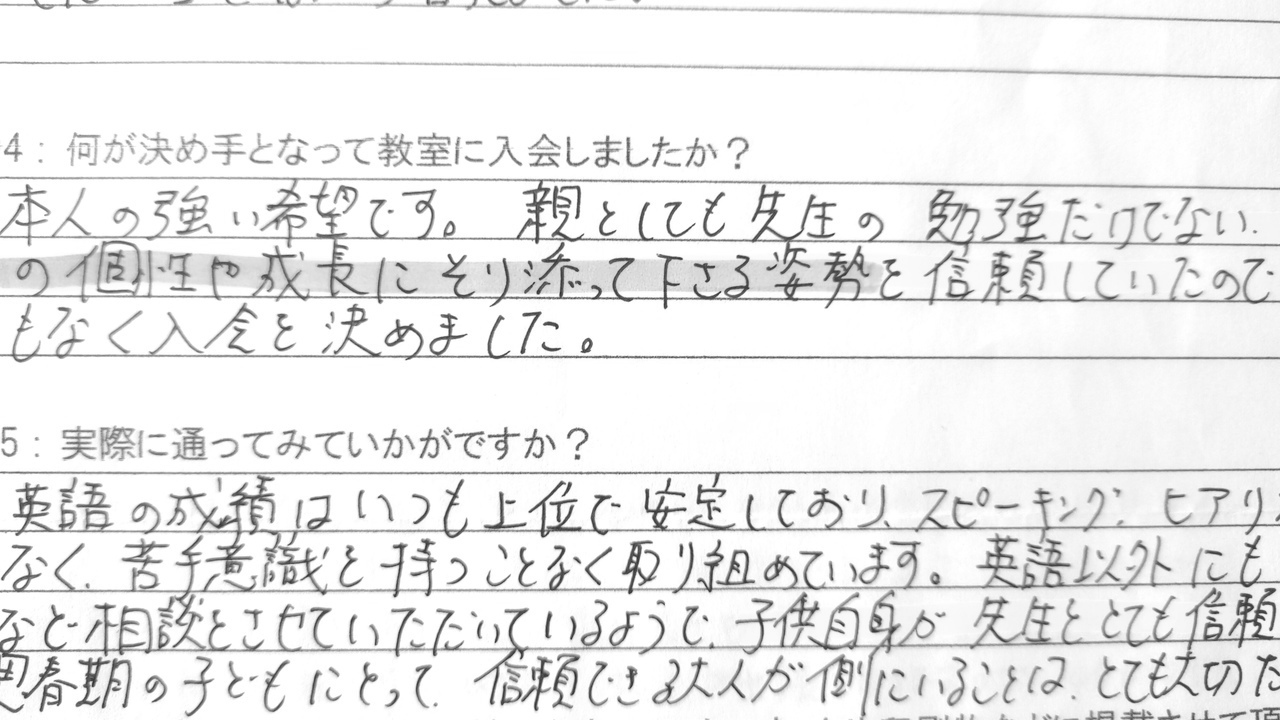 4：何が決め手となって教室に入会しましたか？
本人の強い希望です。親としても先生の勉強だけでない、
の個性や成長にそり添って下さる姿勢を信頼していたので
もなく入会を決めました。
5：実際に通ってみていかがですか？
英語の成績はいつも上位で安定しており、スピーキング、ヒアリ
なく、苦手意識を持つことなく取り組めています。英語以外にも
など相談をさせていただいているようで、子供自身が先生をとても信頼
思春期の子どもにとって、信頼できる大人が側にいることは、とても大切た